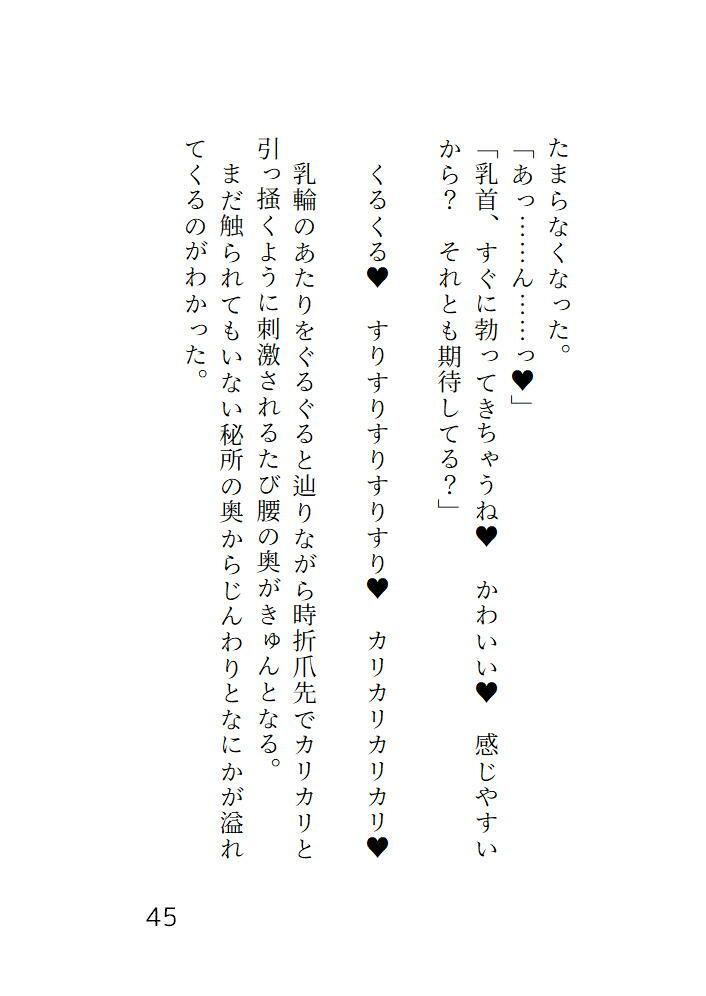 たまらなくなった。
「あっ……ん……っ♥」
「乳首、すぐに勃ってきちゃうね♥　かわいい♥　感じやすい
から？　それとも期待してる？」
くるくる♥　すりすりすりすりすり♥　カリカリカリカリ♥
乳輪のあたりをぐるぐると辿りながら時折爪先でカリカリと
引っ掻くように刺激されるたび腰の奥がきゅんとなる。
まだ触られてもいない秘所の奥からじんわりとなにかが溢れ
てくるのがわかった。
45